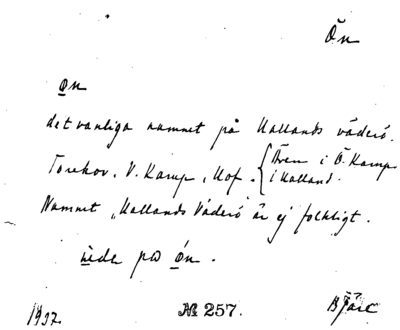 Ön
 øn
det vanliga namnet på Hallands väderö.
Torekov, V. Karup, Hof. { Även i Ö. Karup
i Halland.
Namnet „Hallands Väderö" är ej folkligt.
ùde på ǿn.
1937. № 257. Bjäre